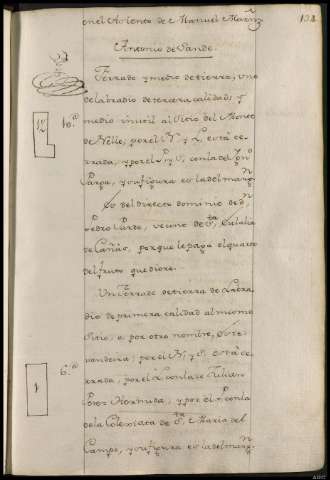 en el Aciento de Manuel Marnz
132
Antonio de Sande.
Ferrado y medio de tierra, uno
de labradio de tercera calidad, y
medio inutil al Sitio del Monte
de Nelle, por el N. y L. está ce-
12
10.a
rrada, y por el P. y S. con la del
Parga, y su figura es la del marg.n
Es del directo dominio de d.n
Pedro Pardo, vecino de S.ta Eulalia
de Cañás, porque le paga el quarto
del fruto que diere.
Un Ferrado de tierra de Labra
dio de primera calidad al mismo
Sitio, o por otro nombre,
vandeira; por el N. y S. está ce-
1
6.a
rrada, por el L. con la de Julian
Perez Hormida, y por el P. con la
de la Colexiata de S.ta Maria del
Campo, y su figura es la del marg.n